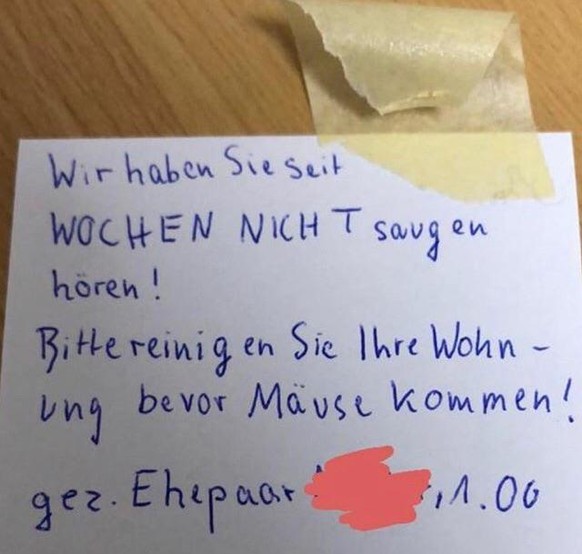 Wir haben Sie seit
WOCHEN NICHT saugen
hören!
Bitte reinigen Sie Ihre Wohn-
ung bevor Mäuse kommen!
gez. Ehepaar , 1. OG